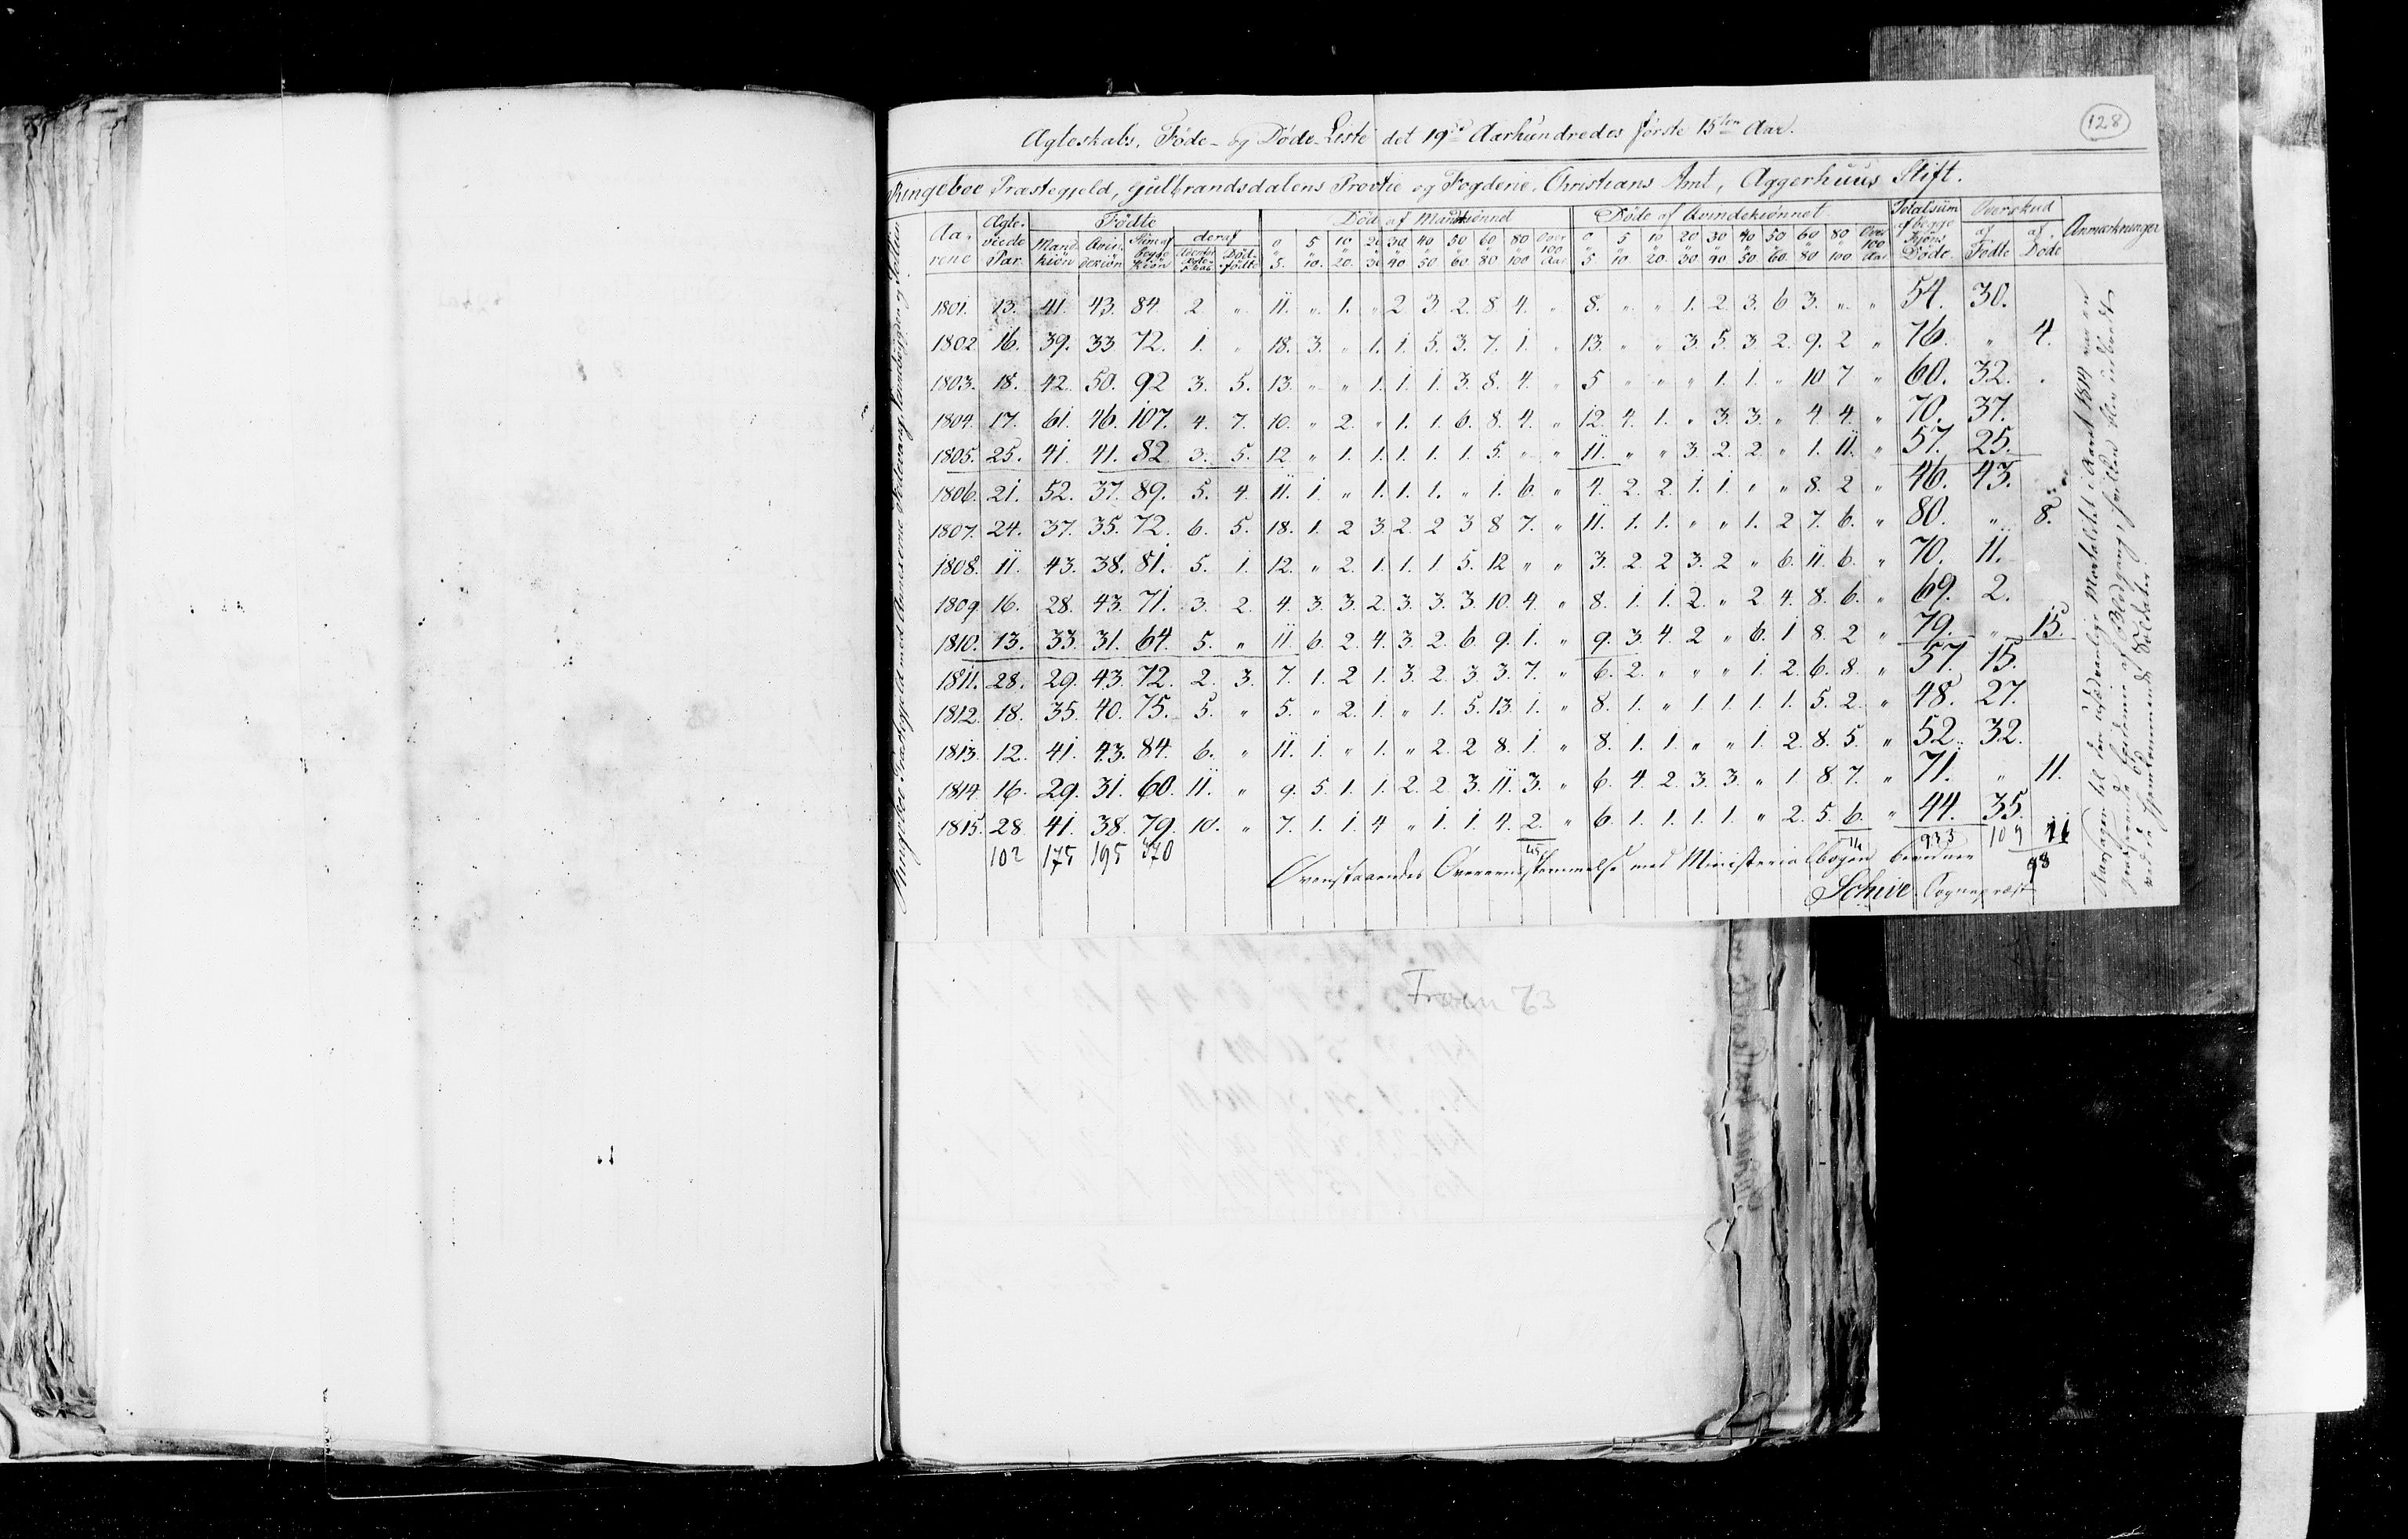 128
Ægteskabs, Föde- og Döde-Liste det 19de Aarhundredes förste 15ten Aar.
Ringeboe Præstegjeld, Gulbrandsdalens Provstie og Fogderie, Christians Amt, Aggerhuus Stift.
Aarene | Ægteviede Par | Födte | Döde af Mandkiönnet | Döde af Qvindekiönnet | Totalsum af begge Kjöns Döde | Overskud | Anmærkninger
Mandkiön | Qvindekiön | Sum af begge Kiön | deraf | af Födte | af Döde
Udenfor Ægteskab | Dödfödte
0 " 5. | 5 " 10. | 10 " 20. | 20 " 30 | 30 " 40 | 40 " 50 | 50 " 60 | 60 " 80 | 80 " 100 | Over 100 Aar | 0 " 5 | 5 " 10. | 10 " 20. | 20 " 30 | 30 " 40 | 40 " 50 | 50 " 60 | 60 " 80 | 80 " 100 | Over 100 Aar
1801. 13. 41. 43. 84 2. " 11. " 1. " 2 3 2. 8 4. " 8. " " 1. 2. 3. 6 3. " " 54. 30.
1802 16. 39. 33 72. 1. " 18. 3. " 1. 1. 5. 3. 7. 1. " 13. " " 3. 5. 3 2. 9. 2 " 76. " 4.
1803. 18. 42. 50. 92 3. 5. 13. " " 1. 1. 1. 3. 8. 4. " 5 " " " 1. 1. " 10 7 " 60. 32.
1804. 17. 61. 46. 107. 4. 7. 10. " 2. " 1. 1. 6. 8. 4. " 12. 4. 1. " 3. 3. " 4 4. " 70. 37.
1805. 25. 41. 41. 82 3. 5. 12. " 1. 1. 1. 1. 1. 5. " " 11. " " 3 2. 2 " 1. 11. " 57. 25.
1806. 21. 52. 37. 89. 5. 4. 11. 1. " 1. 1. 1. " 1. 6. " 4. 2. 2. 1. 1. " " 8. 2 " 46. 43.
1807. 24. 37. 35. 72. 6. 5. 18. 1. 2 3. 2. 2 3 8 7. " 11. 1. 1. " " 1. 2 7. 6. " 80. " 8.
1808. 11. 43. 38. 81. 5. 1. 12. " 2. 1. 1. 1 5. 12 " " 3. 2. 2 3. 2 " 6. 11. 6. " 70. 11.
1809 16. 28. 43. 71. 3. 2. 4. 3. 3. 2. 3. 3. 3. 10. 4. " 8. 1. 1. 2. " 2 4. 8. 6. " 69. 2.
1810. 13. 33. 31. 64. 5. " 11. 6. 2. 4. 3. 2. 6. 9. 1. " 9. 3. 4. 2 " 6. 1 8. 2 " 79. " 15.
1811. 28. 29. 43. 72. 2. 3. 7. 1. 2 1. 3. 2. 3 3. 7. " 6. 2. " " " 1. 2. 6. 8. " 57. 15.
1812. 18. 35. 40. 75. 5. " 5. " 2. 1. " 1. 5. 13. 1. " 8. 1. " 1 1 1. 1. 5. 2. " 48. 27.
1813. 12. 41. 43. 84. 6. " 11. 1. " 1. " 2. 2 8. 1. " 8. 1. 1. " " 1. 2. 8. 5. " 52. 32.
1814. 16. 29. 31. 60. 11. " 9. 5. 1. 1. 2. 2. 3. 11. 3. " 6. 4. 2 3. 3. " 1 8. 7. " 71. " 11.
1815. 28. 41. 38. 79. 10. " 7. 1. 1. 4 " 1. 1. 4. 2. " 6. 1. 1. 1. 1. " 2. 5. 6. " 44. 35.
102 175 195 370 45 74 933 109
Ovenstaaendes Overeensstemmelse med Ministerialbogen bevidner
Schive Sognepræst
Ringeboe Præstegjeld med Annexerne
Aarsagen til den usædvanlige Mortalitet i Aaret 1814 var en
af Blodgang, hvilken blev udbredt
ved de hjemkommende Soldater.
Froen 73